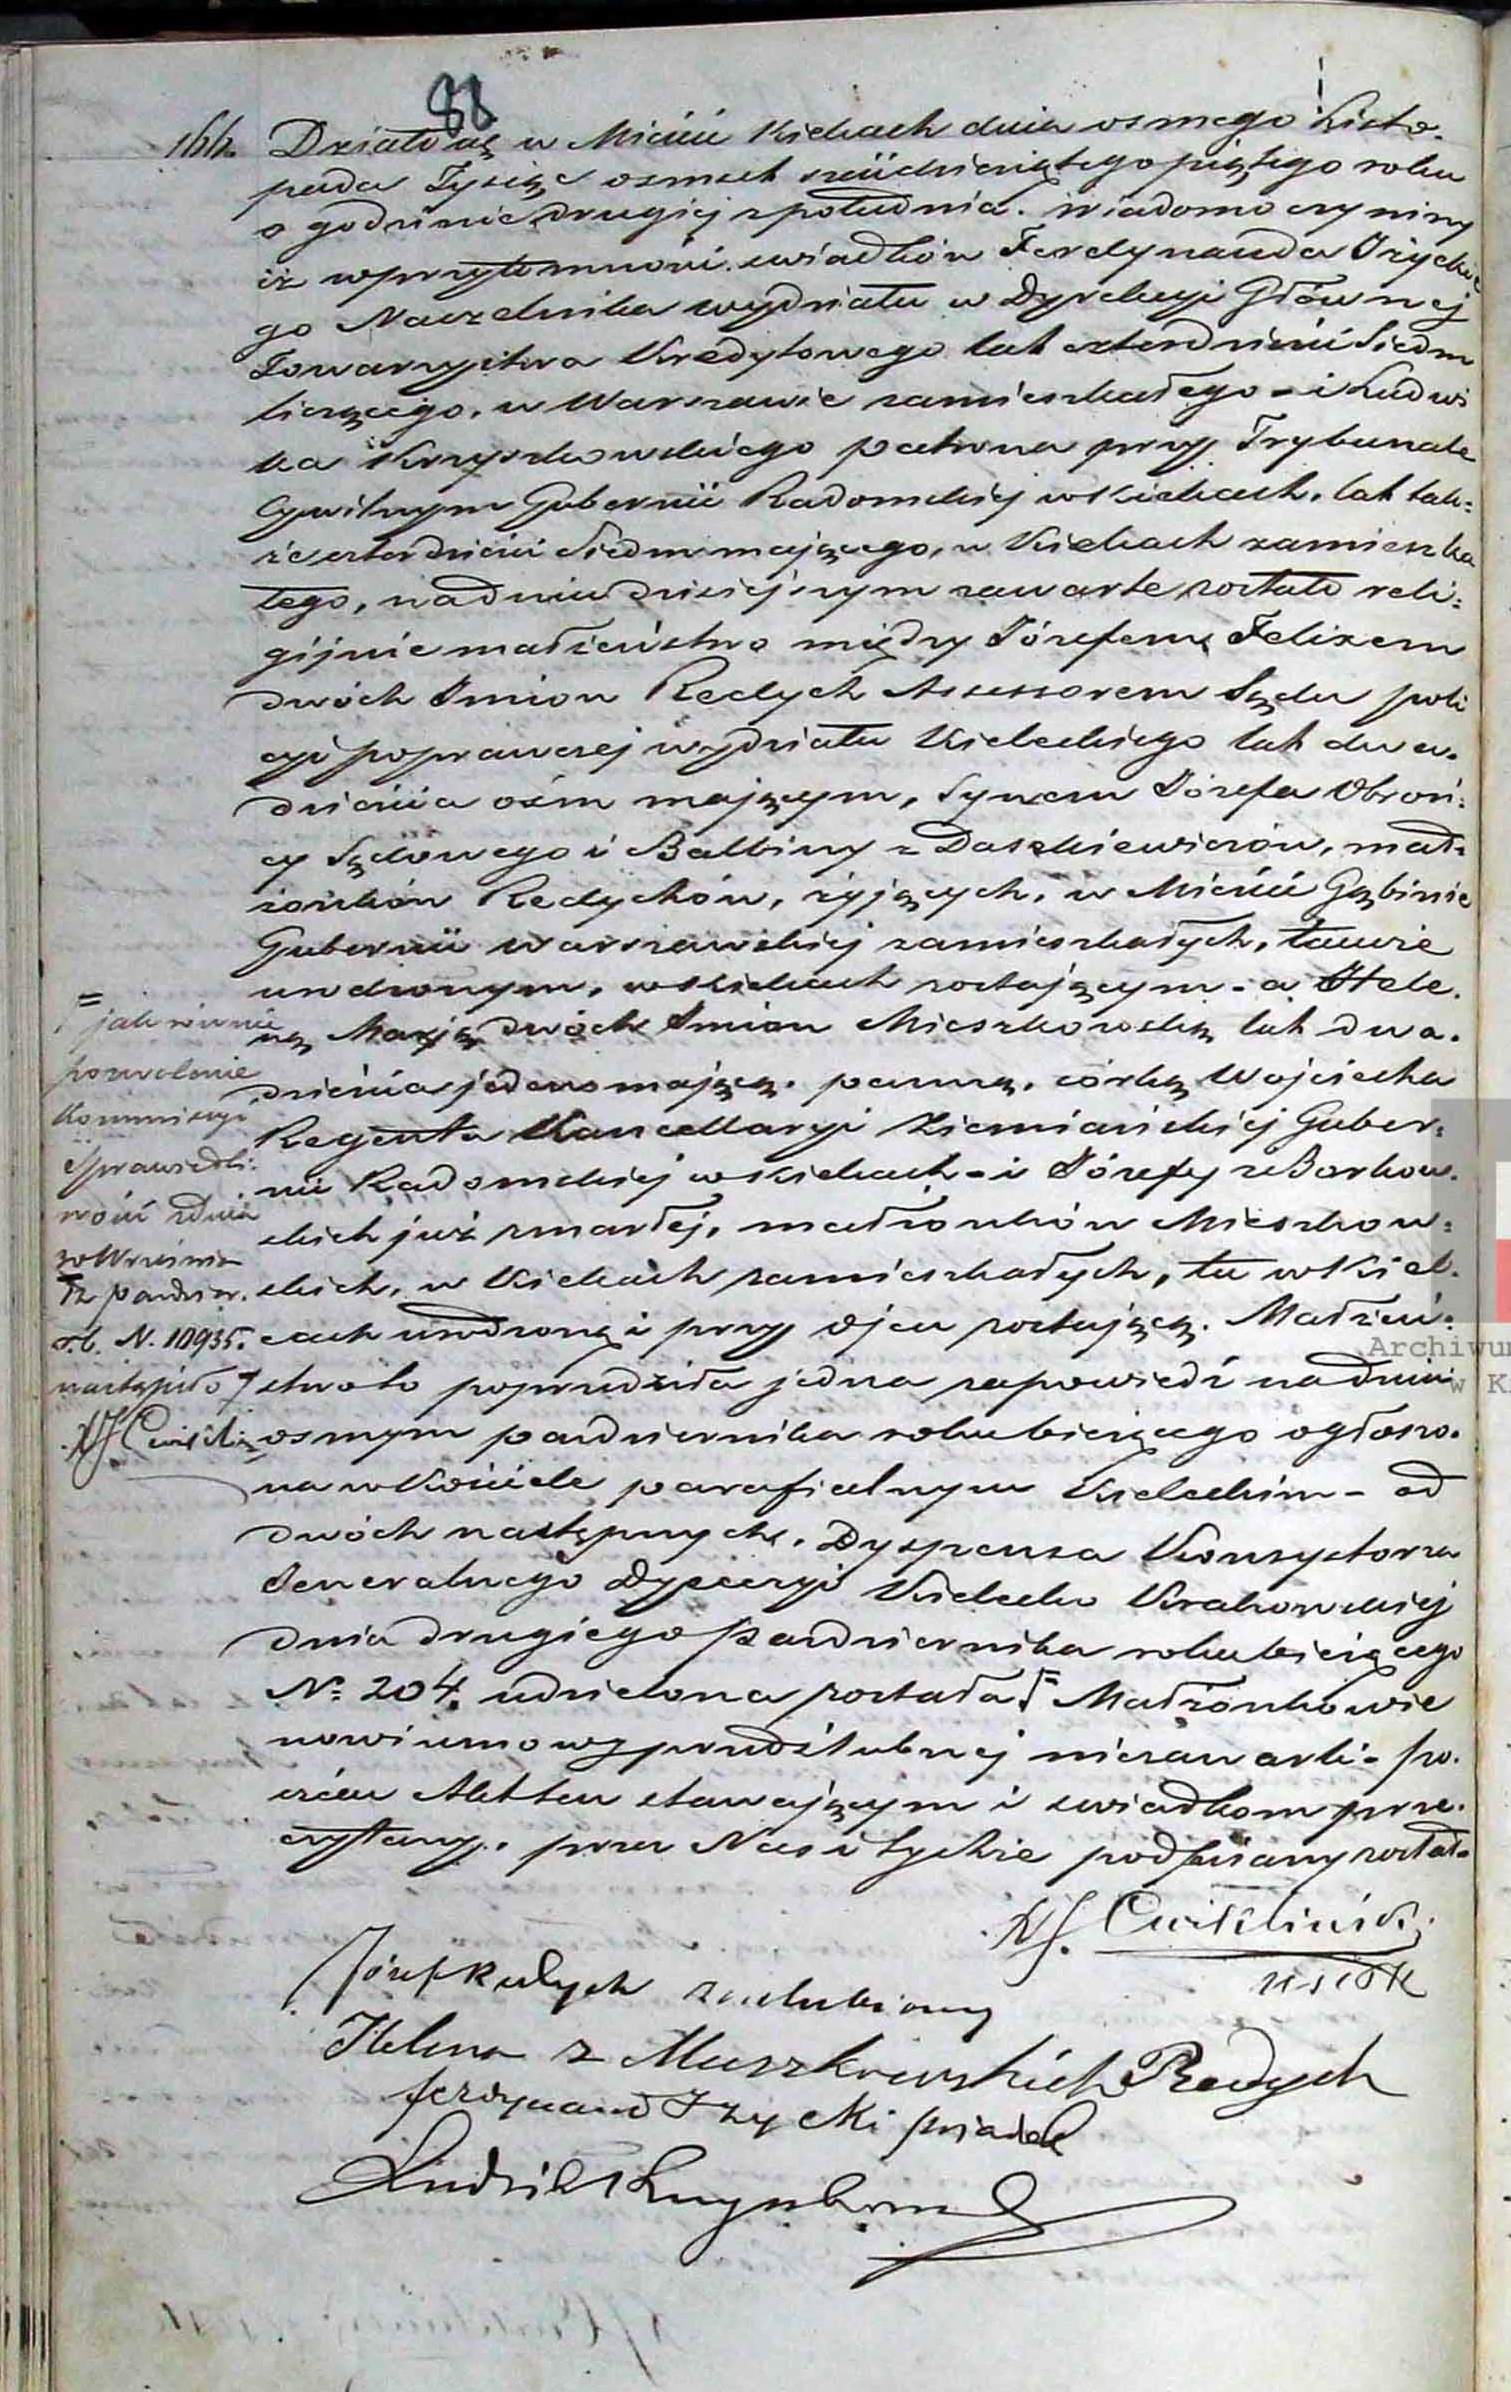 88
166. Działo się w Mieście Kielcach dnia osmego Listo-
pada Tysiąc osmset sześćdziesiątego piątego roku
o godzinie drugiej z południa. Wiadomo czynimy
iż w przytomności swiadków Ferdynanda Ożyckie
go Naczelnika wydziału w Dyrekcyi Głównej
Towarzystwa Kredytowego lat czterdzieści siedm
liczącego, w Warszawie zamieszkałego - i Ludwi
ka Krzyszkowskiego patrona przy Trybunale
Cywilnym Gubernii Radomskiej w Kielcach, lat tak=
że czterdzieści siedm mającego, w Kielcach zamieszka
łego, na dniu dzisiejszym zawarte zostało reli=
gijnie małżeństwo między Józefem Felixem
dwóch Imion Redych Assessorem Sądu poli
cyi poprawczej wydziału Kieleckiego lat dwa-
dzieścia ośm mającym, Synem Józefa Obroń=
cy Sądowego i Balbiny z Daszkiewiczów, mał=
żonków Redychów, żyjących, w Mieście Gąbinie
Gubernii Warszawskiej zamieszkałych, tamże
urodzonym, w Kielcach zostającym - a Hele-
ną Marją dwóch Imion Mieszkowską lat dwa-
dzieścia jeden mającą, panną, córką Wojciecha
Regenta Kancellaryi Ziemiańskiej Guber=
nii Radomskiej w Kielcach - i Józefy z Borkow-
skich już zmarłej, małżonków Mieszkow=
skich, w Kielcach zamieszkałych, tu w Kiel-
cach urodzoną i przy ojcu zostającą. Małżeń=
stwo to poprzedziła jedna zapowiedź na dniu
osmym pazdziernika roku bieżącego ogłoszo-
na w Kościele parafialnym Kieleckim - od
dwóch następnych, Dyspensa Konsystorza
Generalnego Dyecezyi Kielecko Krakowskiej
dnia drugiego Pazdziernika roku bieżącego
No 204. udzielona została Małżonkowie
nowi umowy przedślubnej niezawarli - po-
czém Akt ten stawającym i swiadkom prze-
czytany, przez Nas i tychże podpisany został.
=
jak równie
pozwolenie
Kommissyi
Sprawiedli=
wości z dnia
30 Września
12 pazdzier.
r.b. N. 10935.
nastąpiło
XJ. Ćwikliński
XJ. Ćwikliński
Józef Redych zaslubiony
Helena z Mieszkowskich Redych
Ferdynand Ożycki swiadek
Ludwik Krzyszkowski
Archiwum
w K